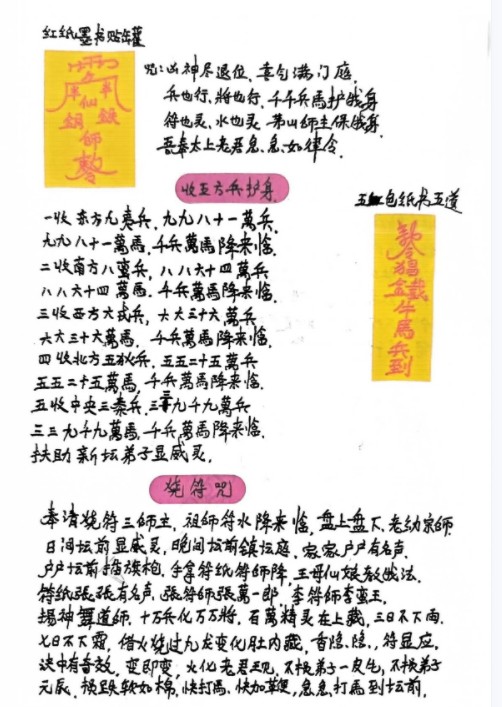 红纸墨书贴罐
咒:凶神尽退位,喜气满门庭.
兵也行,將也行,千千兵馬护我身
符也灵,水也灵,茅山师主保我身.
吾奉太上老君急、急、如律令.
半 仙 半
銅 師 鐵
敕
收五方兵护身
五色纸书五道
一收东方九夷兵,九九八十一萬兵,
九九八十一萬馬,千兵萬馬降来临.
二收南方八蛮兵,八八六十四萬兵
八八六十四萬馬,千兵萬馬降来临.
三收西方六戎兵,六六三十六萬兵
六六三十六萬馬,千兵萬馬降来临.
四收北方五狄兵,五五二十五萬兵
五五二十五萬馬,千兵萬馬降来临.
五收中央三秦兵,三三九千九萬兵
三三九千九萬馬,千兵萬馬降来临.
扶助新坛弟子显威灵.
敕令猖盆鐵牛馬兵到
烧符咒
奉请烧符三師主,祖師符水降来临,盘上盘下,老幼宗師.
日间坛前显威灵,晚间坛前鎮坛庭,家家户户有名声.
户户坛前插旗枪.手拿符纸符師降,王母仙娘教我法.
符纸張張有名声,張符師張萬一郎,李符師李蛮王.
揚神舞道師,十万兵化万万將,百萬精灵在上藏,三日不下雨.
七日不下霜,借火烧过九龙变化肚内藏,香隐、隐、,符显应.
诀中有奇效,变即变,火化老君王现,不换弟子一皮毛,不换弟子
元辰.软如棉,快打馬,快加草便,急急打馬到坛前.